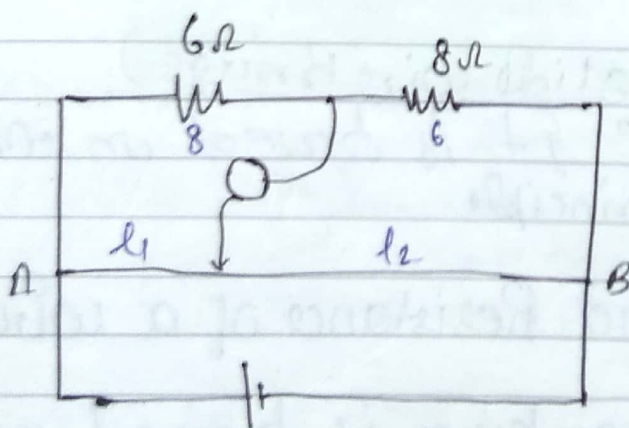 6Ω 8Ω
8 6
l₁ l₂
A B